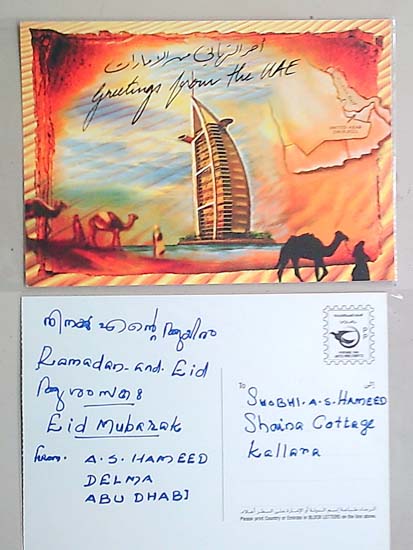 أحر التهاني من الإمارات
Greetings from the UAE
UNITED ARAB
EMIRATES
നിനക്ക് എന്റെ
Ramadan and Eid
ആശംസകൾ
Eid Mubarak
from. A.S. HAMEED
DELMA
ABU DHABI
P
P
To
إلى
SHOBHI.A.S.HAMEED
Shaina Cottage
Kallara
Please print Country or Emirate in BLOCK LETTERS on the line above.